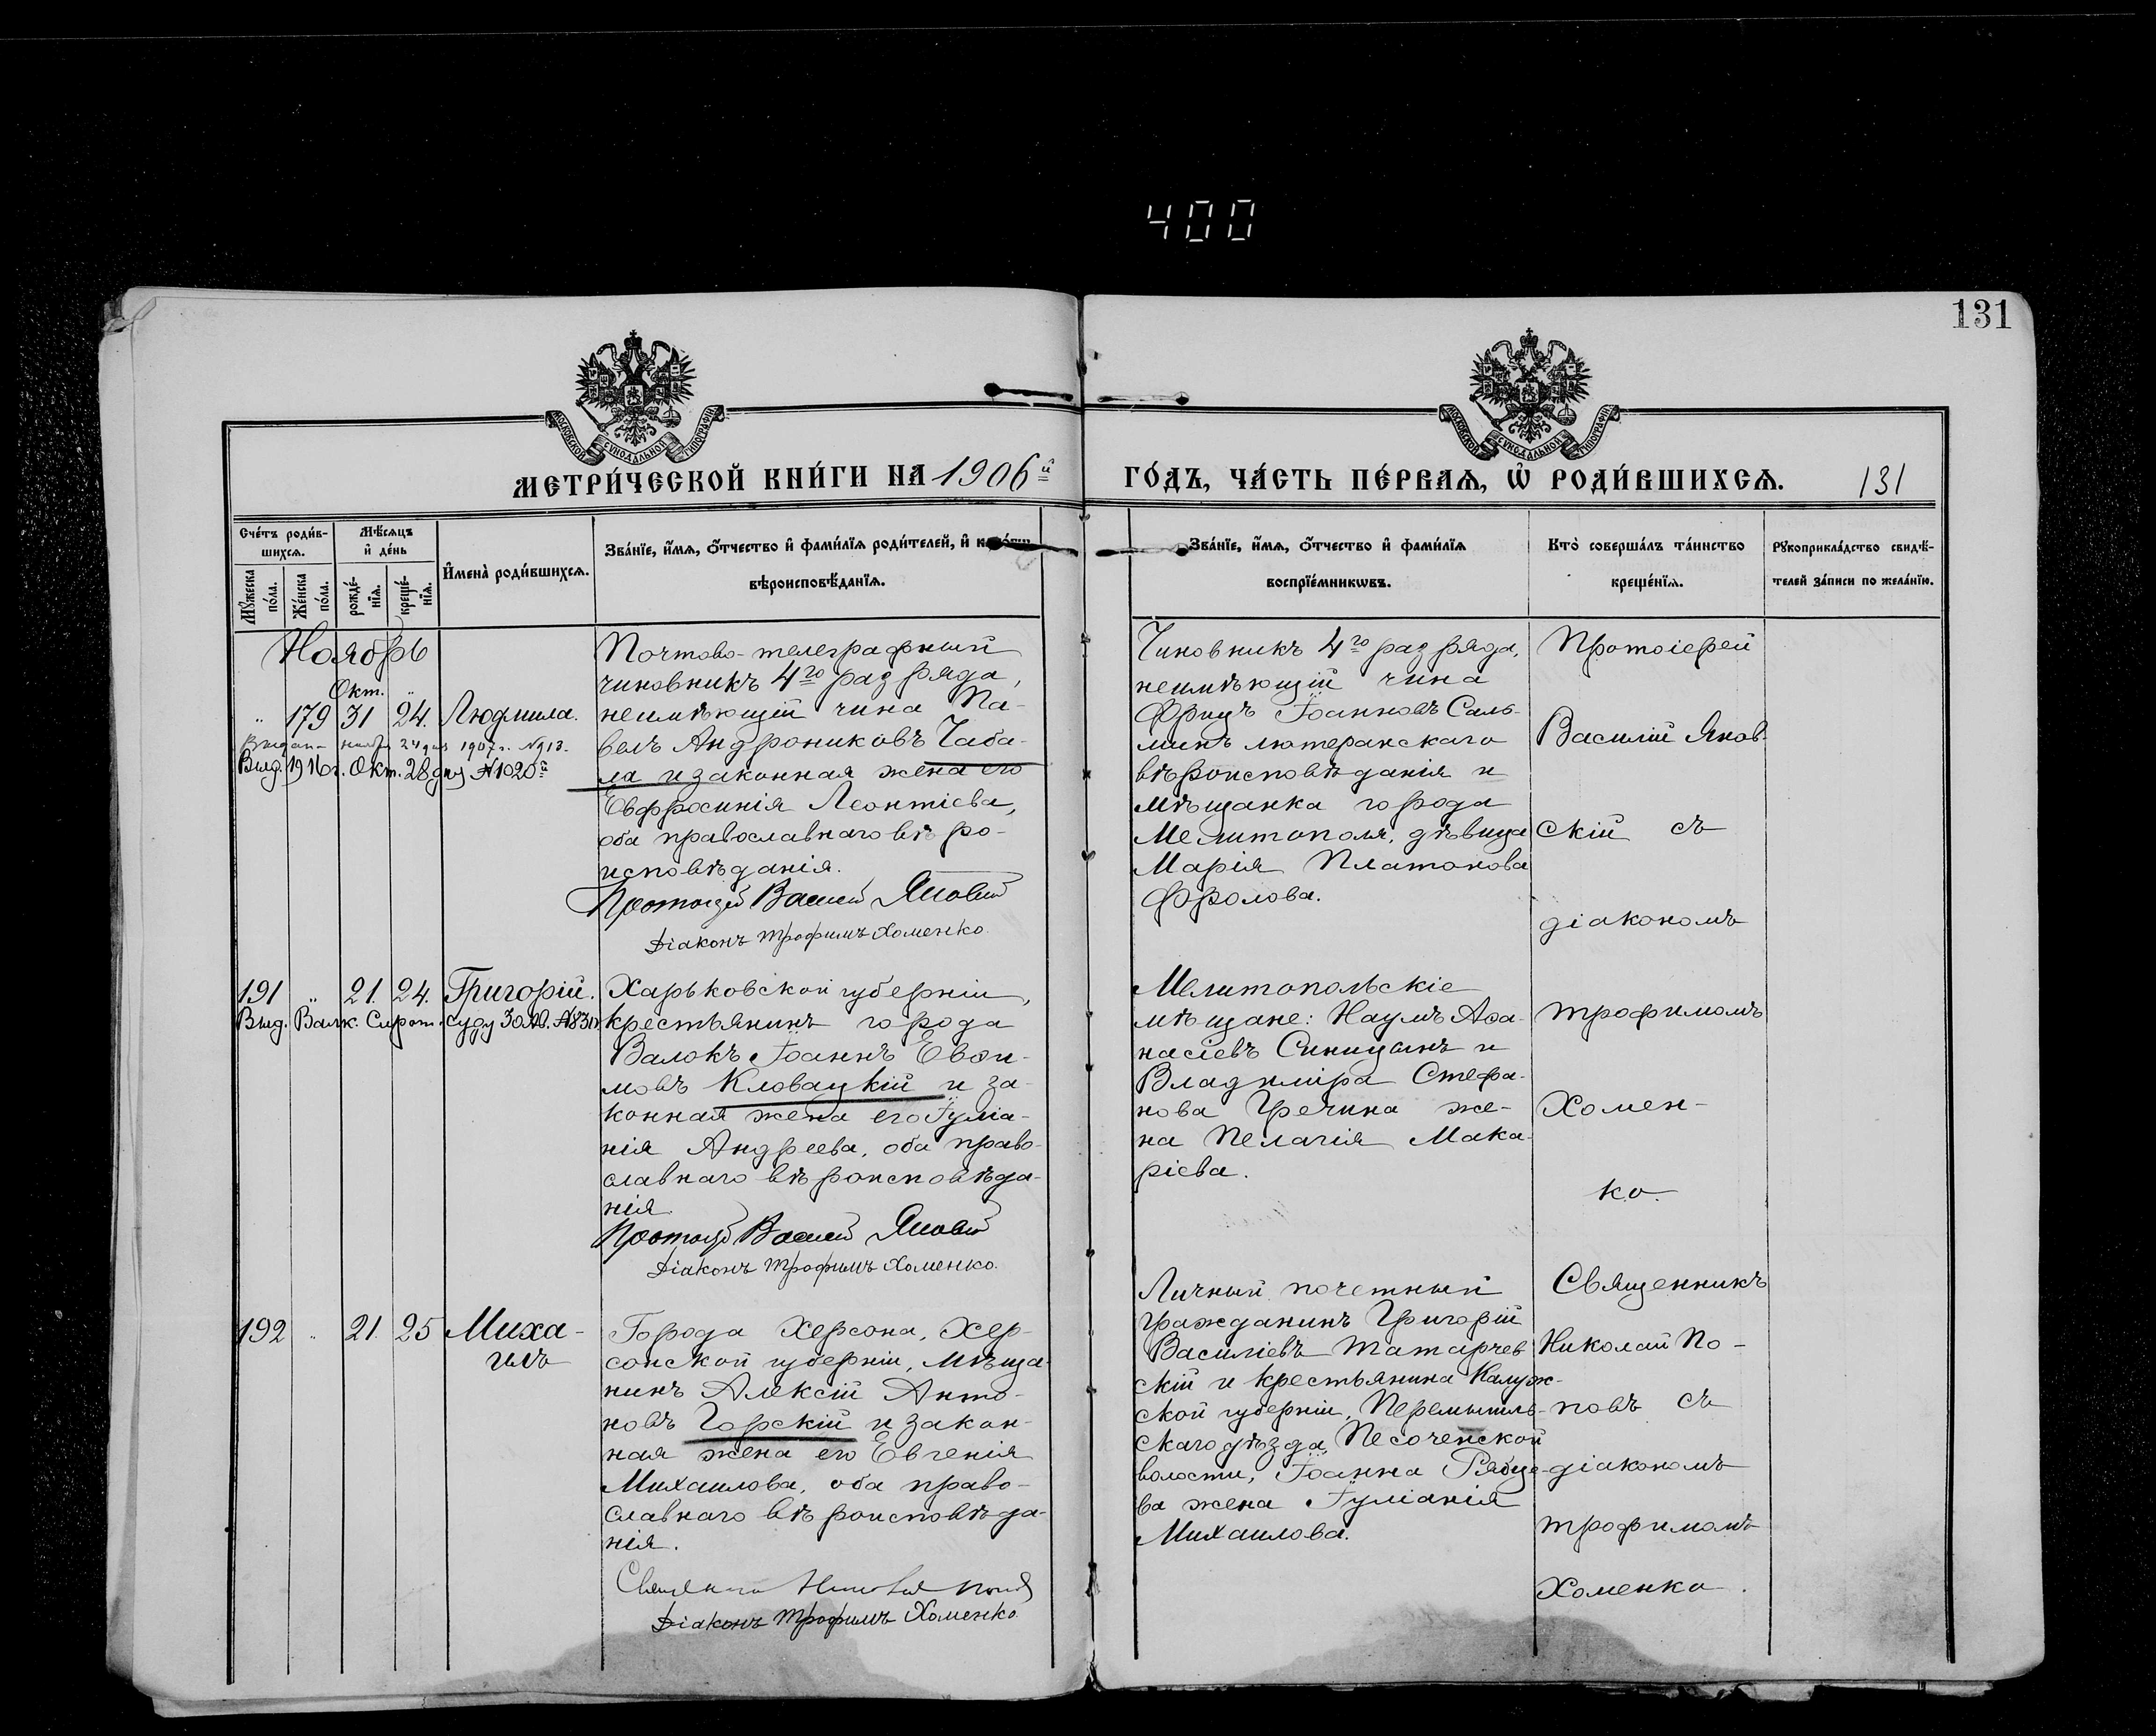 400
131
МОСКОВСКОЙ СѴНОДАЛЬНОЙ ТИПОГРАФІИ
МОСКОВСКОЙ СѴНОДАЛЬНОЙ ТИПОГРАФІИ
МЕТРИ́ЧЕСКОЙ КНИ́ГИ НА 1906й
ГО́ДЪ, ЧА́СТЬ ПЕ́РВАѦ, Ѽ РОДИ́ВШИХСѦ. 131
Сче́тъ роди́в-
шихсѧ.
Мꙋ́жеска по́ла.
Же́нска по́ла.
Мѣ́сѧцъ
и҆ де́нь
рожде́-
нїѧ.
креще́-
нїѧ.
И҆мена̀ роди́вшихсѧ.
Зва́нїе, и҆́мѧ, ѻ҆́тчество и҆ фами́лїѧ роди́телей, и҆
вѣроисповѣ́данїѧ.
Зва́нїе, и҆́мѧ, ѻ҆́тчество и҆ фами́лїѧ
воспрїе́мникѡвъ.
Кто̀ соверша́лъ та́инство
креще́нїѧ.
Рꙋкоприкла́дство свидѣ́-
телей за́писи по жела́нїю.
Ноябрь
Окт. "
" 179 31 24. Людмила.
1907 г. №913.
Выд. 1916 г. Окт. 28 дня №1020й
Почтово-телеграфный
чиновникъ 4го разряда,
неимѣющій чина Па-
велъ Андрониковъ Чаба-
ла и законная жена его
Евфросинія Леонтіева,
оба православнаго вѣро-
исповѣданія.
Протоіерей Василій Яновскій
Діаконъ Трофимъ Хоменко.
Чиновникъ 4го разряда,
неимѣющій чина
Фрицъ Іоанновъ Саль-
минъ лютеранскаго
вѣроисповѣданія и
мѣщанка города
Мелитополя, дѣвица
Марія Платонова
Фролова.
Протоіерей
Василій Янов-
скій съ
діакономъ
Трофимомъ
Хомен-
ко.
191 " 21. 24. Григорій.
Выд. Валк. Сирот. суду
Харьковской губерніи,
крестьянинъ города
Валокъ Іоаннъ Евѳи-
мовъ Кловацкій и за-
конная жена его Іуліа-
нія Андреева, оба право-
славнаго вѣроисповѣда-
нія.
Протоіерей Василій Яновскій
Діаконъ Трофимъ Хоменко.
Мелитопольскіе
мѣщане: Наумъ Аѳа-
насіевъ Синицынъ и
Владиміра Стефа-
нова Гречина же-
на Пелагія Мака-
ріева.
192 " 21. 25 Миха-
илъ
Города Херсона, Хер-
сонской губерніи, мѣща-
нинъ Алексій Анто-
новъ Горскій и закон-
ная жена его Евгенія
Михаилова, оба право-
славнаго вѣроисповѣда-
нія.
Священникъ Николай Поповъ
Діаконъ Трофимъ Хоменко.
Личный почетный
гражданинъ Григорій
Василіевъ Татарчев-
скій и крестьянина Калуж-
ской губерніи, Перемышль-
скаго уѣзда, Песоченской
волости, Іоанна Рябце-
ва жена Іуліанія
Михаилова.
Священникъ
Николай По-
повъ съ
діакономъ
Трофимомъ
Хоменко.